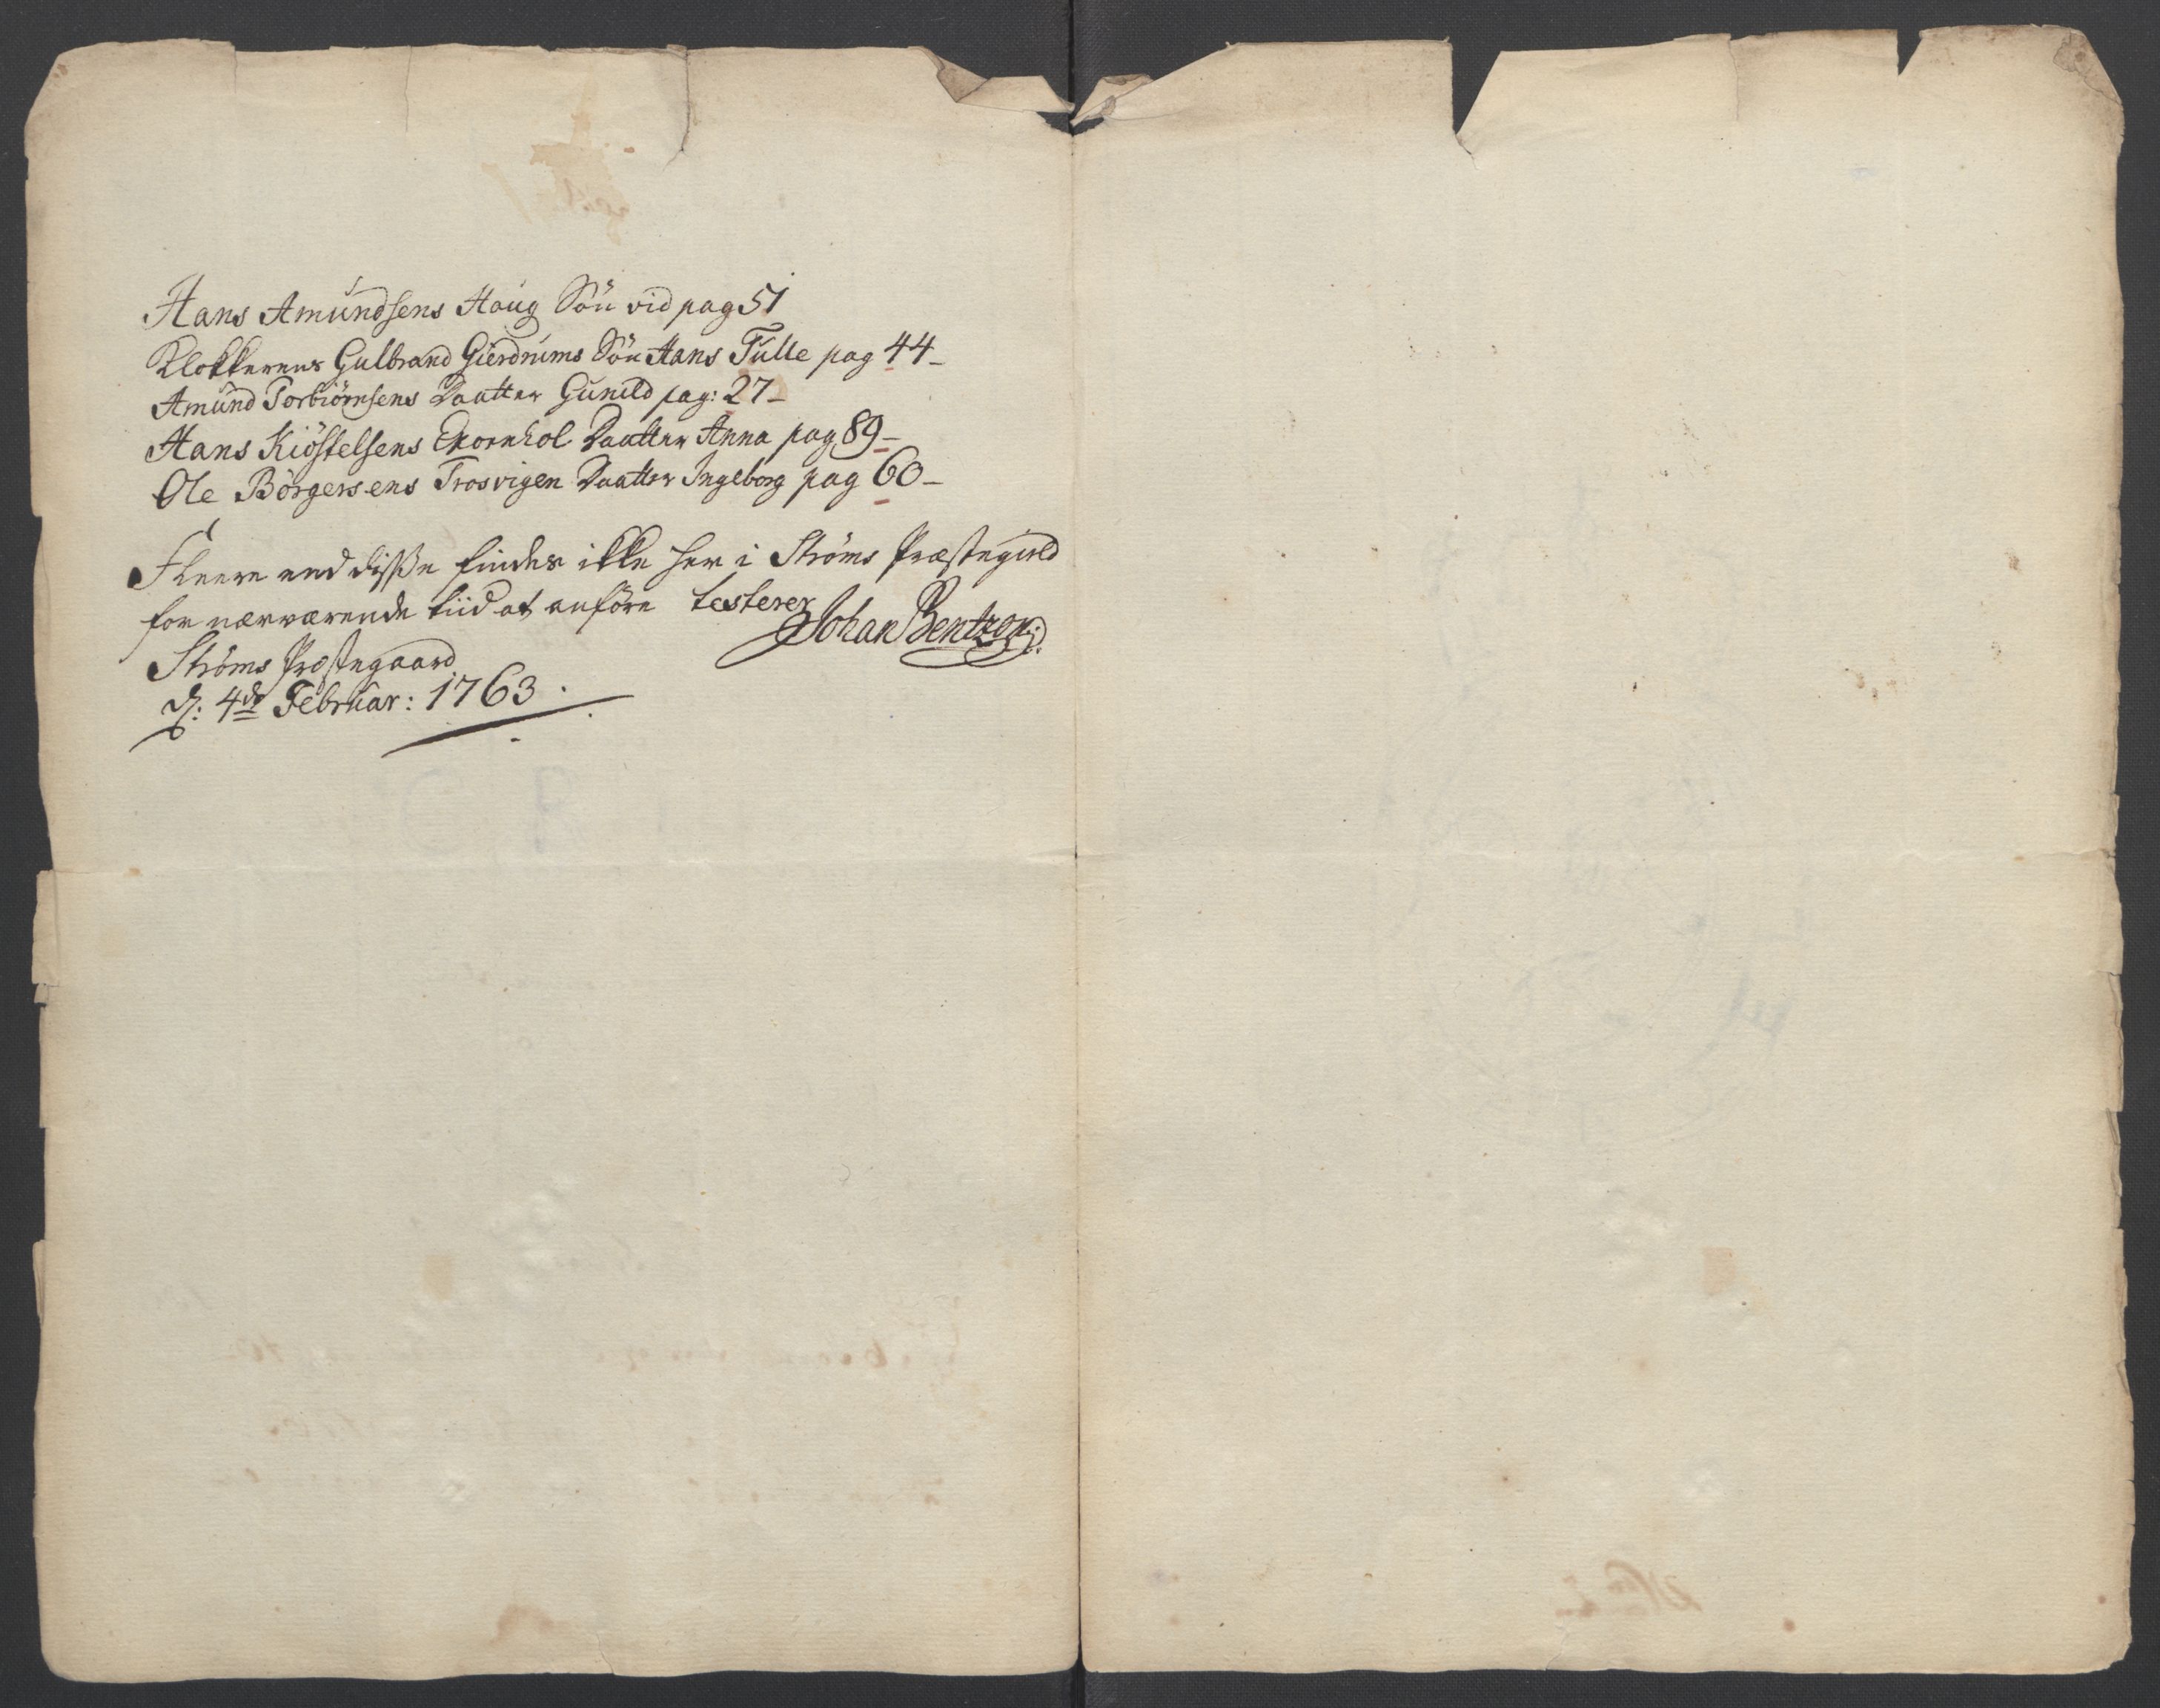 Hans Amundsens Haug Sön vid pag 51
Klokkerens Gulbrand Gierdrums Sön Hans Tulle pag 44_
Amund Torbiörnsens Daatter Gunild pag: 27_
Hans Kiöstelsens Ekornhol Daatter Anna pag 89_
Ole Börgersens Trosvigen Daatter Ingeborg pag 60_
Fleere end disse findes ikke her i Ströms Præstegield
for nærværende tiid at anföre testerer
Johan Bentzon
Ströms Præstegaard
d: 4de Februar: 1763.